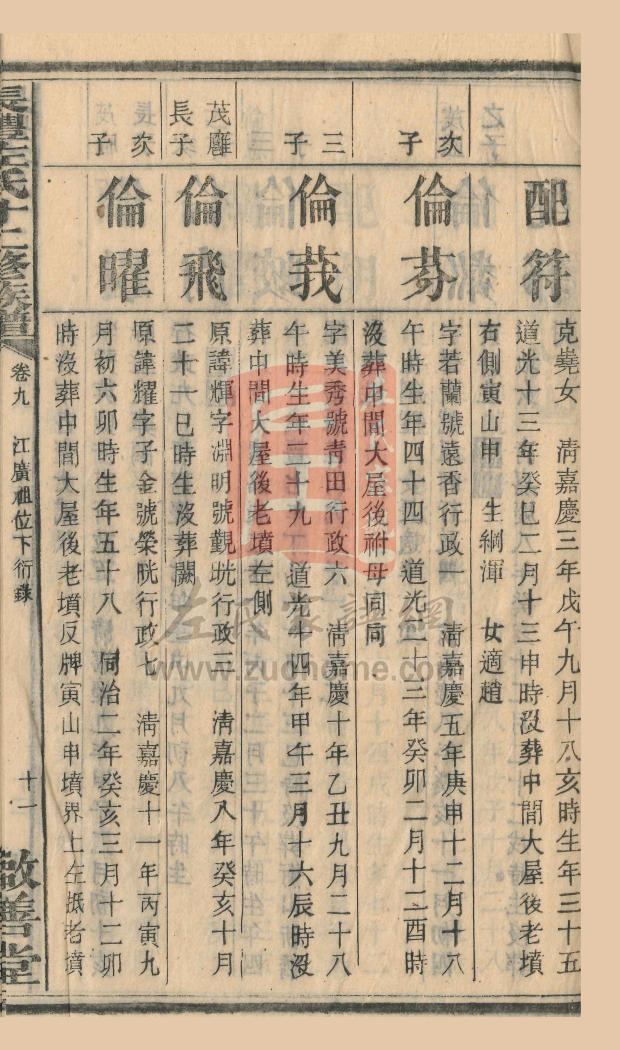 配符
克堯女 淸嘉慶三年戊午九月十八亥時生年三十五
道光十三年癸巳二月十三申時沒葬中間大屋後老墳
右側寅山申 生綱渾 女適趙
次子
倫芬
字若蘭號遠香行政一 淸嘉慶五年庚申十二月十八
午時生年四十四 道光二十三年癸卯二月十二酉時
沒葬中間大屋後祔母同同
三子
倫莪
字美秀號靑田行政六 淸嘉慶十年乙丑九月二十八
午時生年三十九 道光十四年甲午三月十六辰時沒
葬中間大屋後老墳左側
茂廱長子
倫飛
原諱輝字淵明號觀垙行政三 淸嘉慶八年癸亥十月
二十一巳時生沒葬闕
次子
倫曜
原諱耀字子金號榮晄行政七 淸嘉慶十一年丙寅九
月初六卯時生年五十八 同治二年癸亥三月十二卯
時沒葬中間大屋後老墳反牌寅山申墳界上左抵老墳
長澧左氏十二修族譜
卷九 江廣祖位下衍錄
十一
啟善堂
左氏家譜網
www.zuohome.com